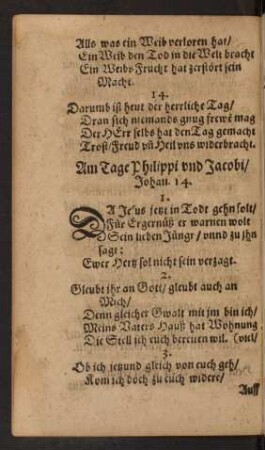 Alls was ein Weib verloren hat/
Ein Weib den Tod in die Welt bracht
Ein Weibs Frucht hat zerstört sein
Macht.
14.
Darumb ist heut der herrliche Tag/
Dran sich niemands gnug frewẽ mag
Der HErr selbs hat den Tag gemacht
Trost/ Freud vñ Heil vns widerbracht.
Am Tage Philippi vnd Jacobi/
Johan. 14.
1.
DA Jesus jetzt in Todt gehn solt/
Für Ergernüß er warnen wolt
Sein lieben Jünge/ vnnd zu jhn
sagt:
Ewer Hertz sol nicht sein verzagt.
2.
Gleubt jhr an Gott/ gleubt auch an
Mich/
Denn gleicher Gwalt mit jm bin ich/
Meins Vaters Hauß hat Wohnung
Die Stell ich euch bereuen wil. (viel/
3.
Ob ich jetzund gleich von euch geh/
Kom ich doch zu euch widere/
Auff